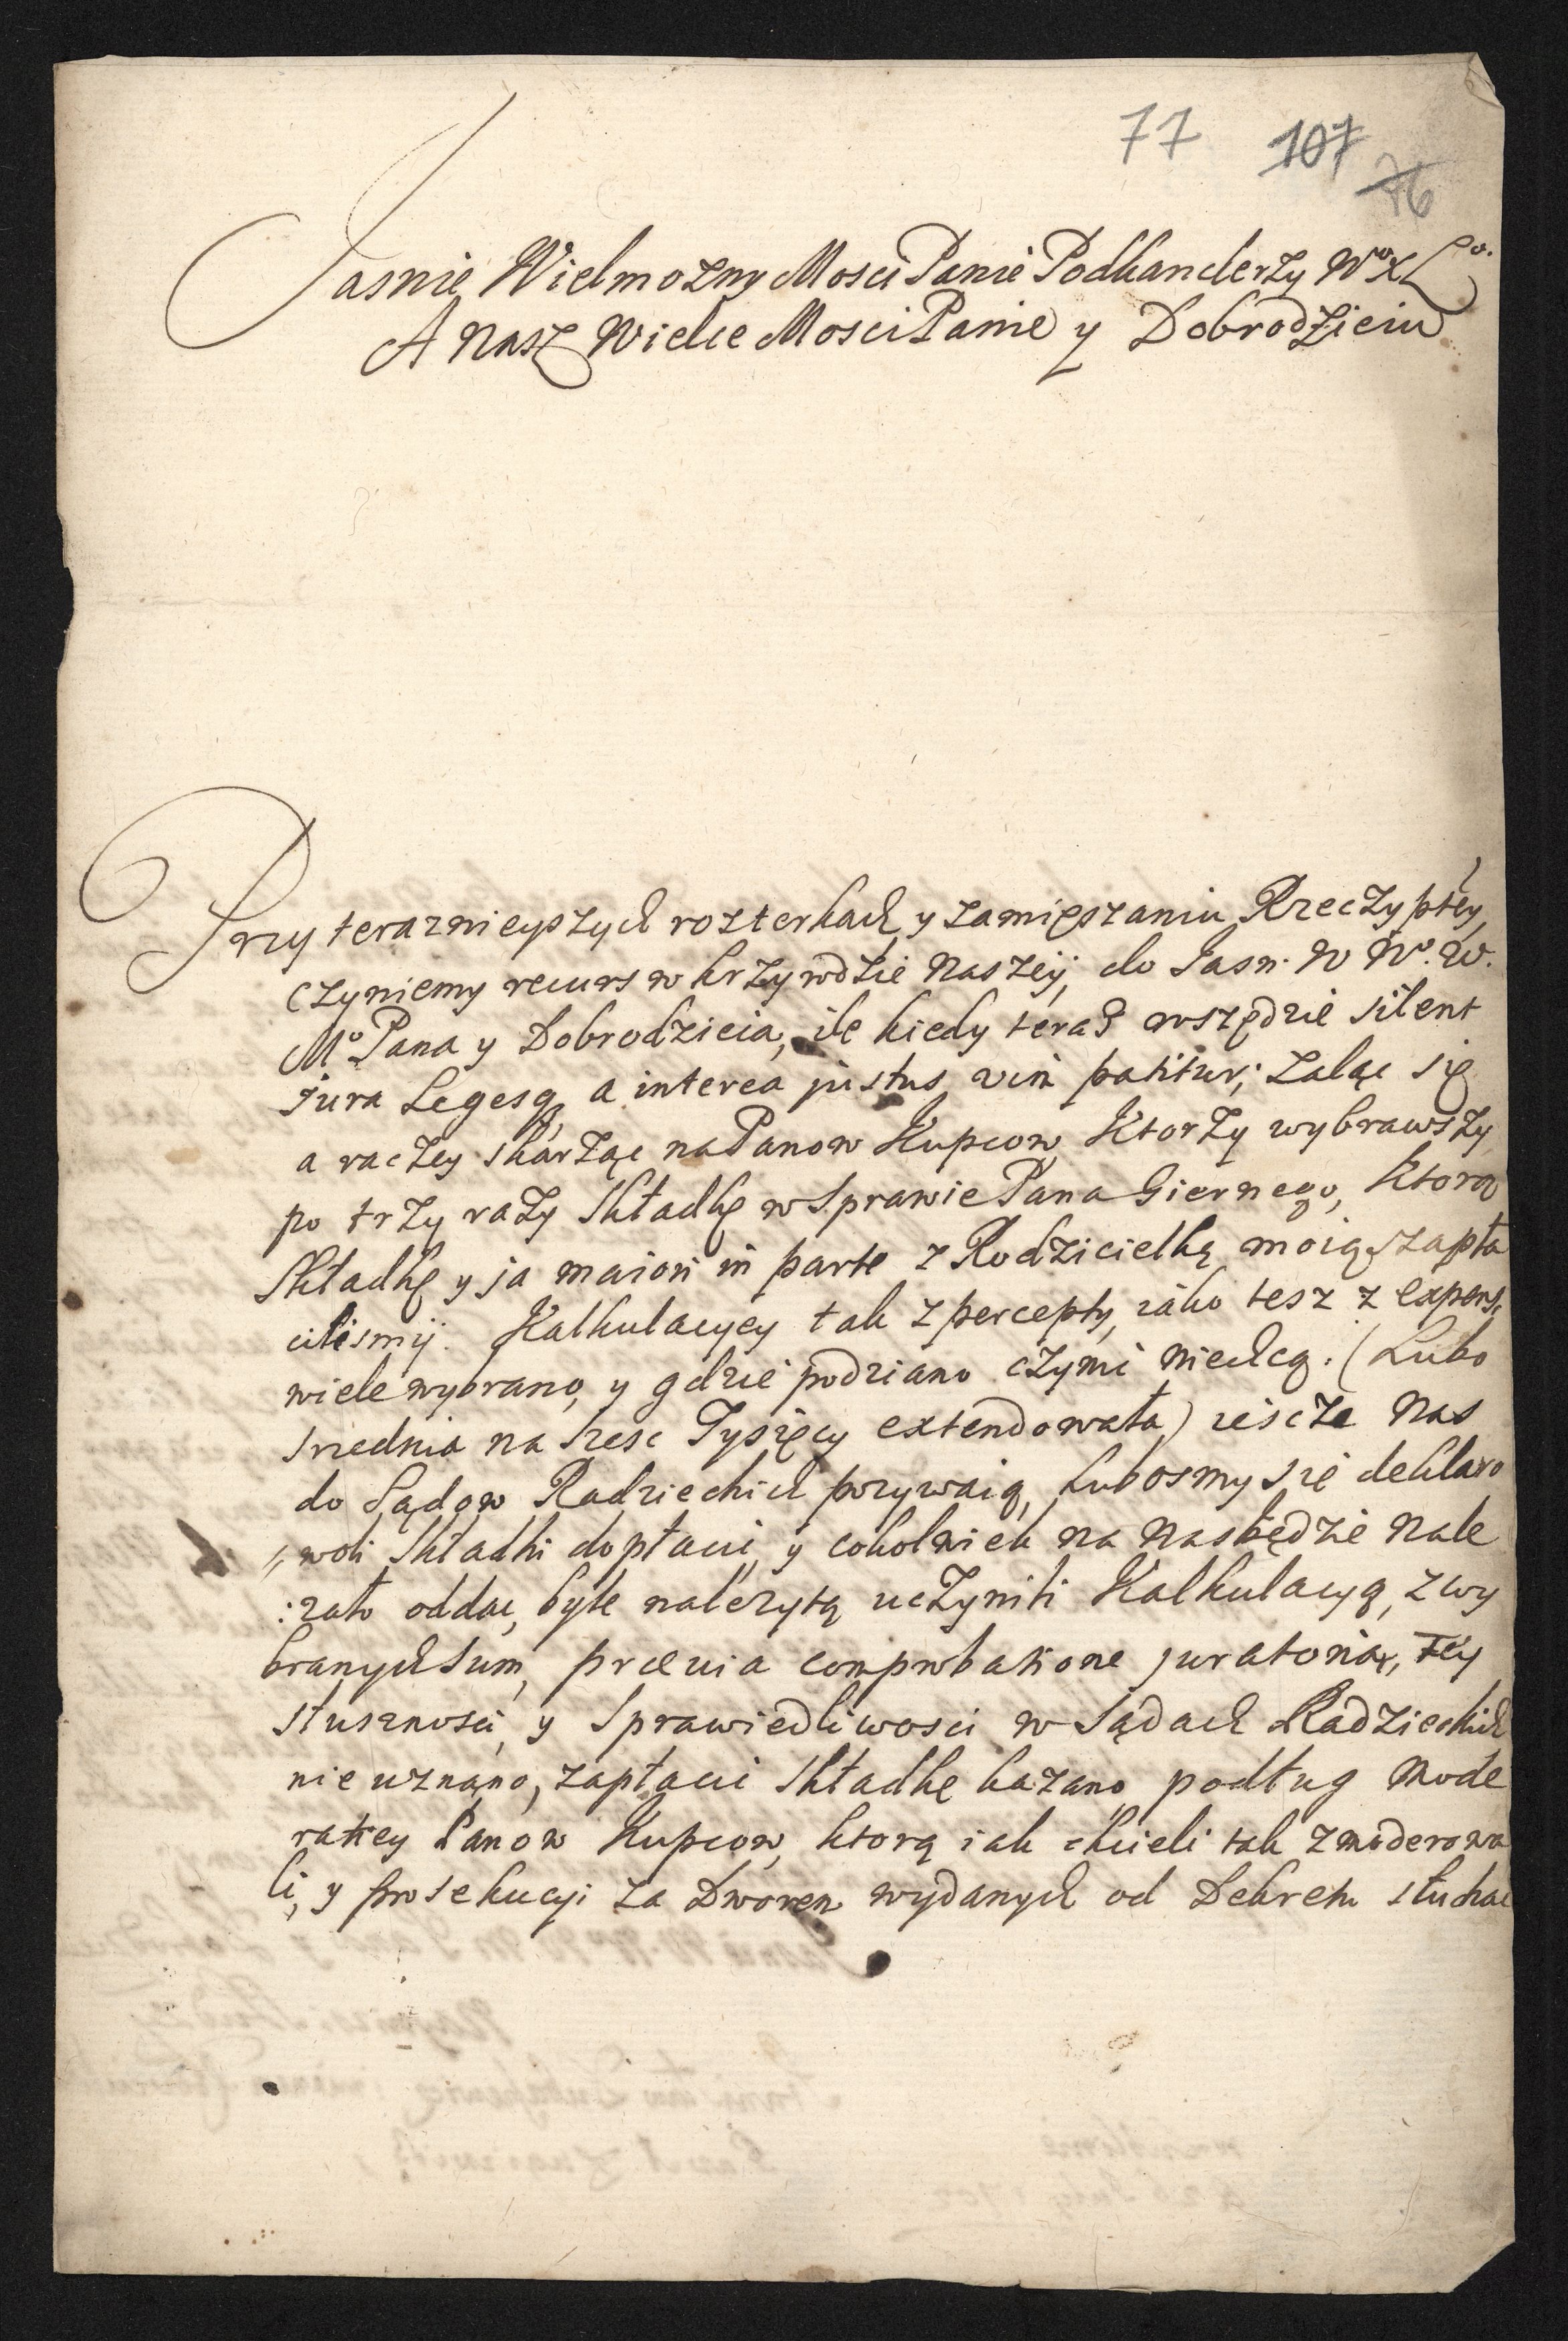 77 107 76
Jasnie Wielmozny Mosci Panie Podkanclerzy Wo X Lo.
A Nasz Wielce Mosci Panie y Dobrodzieiu
Przy teraznieyszych rozterkach y zamięszaniu Rzeczyptey,
czyniemy recurs w krzywdzie Naszeÿ, do Jasn. W Wo. W.
Mo Pana y Dobrodzieia, ile kiedy teras wszędzie silent
Jura Legesq, a interea justus vim patitur; Zaląc się
a raczey skarżąc na Panow Kupcow, Ktorzy wybrawszy
po trzy razy Składkę w Sprawie Pana Giernego, ktorą
Składkę y ja maiori in parte z Rodzicielką moią zapła
cilismÿ. Kalkulacyey tak z percepty, iáko tesz z expens,
wiele wybrano, y gdzie podziano czynic niechcą. (Lubo
srzednia na szesc Tysięcy extendowała) iescze Nas
do Sądow Radzieckich pozywaią, Lubosmy się deklaro
„woli Składki dopłacic, y cokolwiek na Nas będzie Nale
:zało oddac, byle należytą uczynili Kalkulacyą, z wy
branych Sum, prævia comprobatione juratoria, Tey
słusznosci, y Sprawiedliwosci w Sądach Radzieckich
nie uznano, zapłacic Składkę kazano podług Mode
ratiey Panow Kupcow, ktorą iak chcieli tak zmoderowa
li, y prosekucyi za Dworem wydanych od Dekretu słuchac